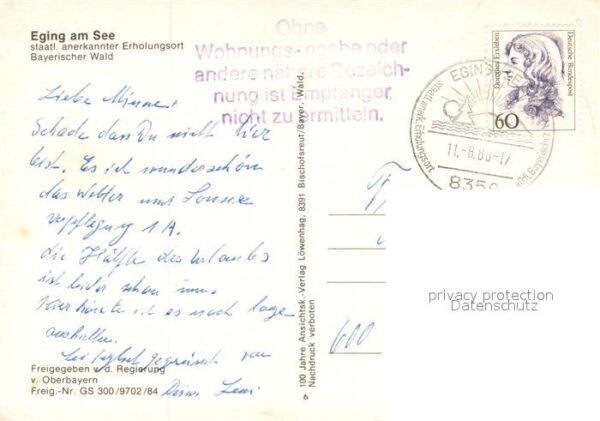 Eging am See
staatl. anerkannter Erholungsort
Bayerischer Wald
Ohne
Wohnungsangabe oder
andere nähere Bezeich-
nung ist Empfänger
nicht zu ermitteln.
Deutsche Bundespost
60
EGING
Staatl. anerk. Erholungsort
11.-8.88-17
835
Liebe
Schade dass Du nicht hier
bist. Es ist wunderschön
das Wetter und Sonne
Verpflegung 1A.
die Hälfte des Urlaubs
ist leider schon um.
Hier könnte ich es noch lange
aushalten.
gegrüsst von
Deine
Freigegeben v. d. Regierung
v. Oberbayern
Freig.-Nr. GS 300/9702/84
100 Jahre Ansichtsk.-Verlag Löwenhag, 8391 Bischofsreut/Bayer. Wald.
Nachdruck verboten
6
600
privacy protection
Datenschutz